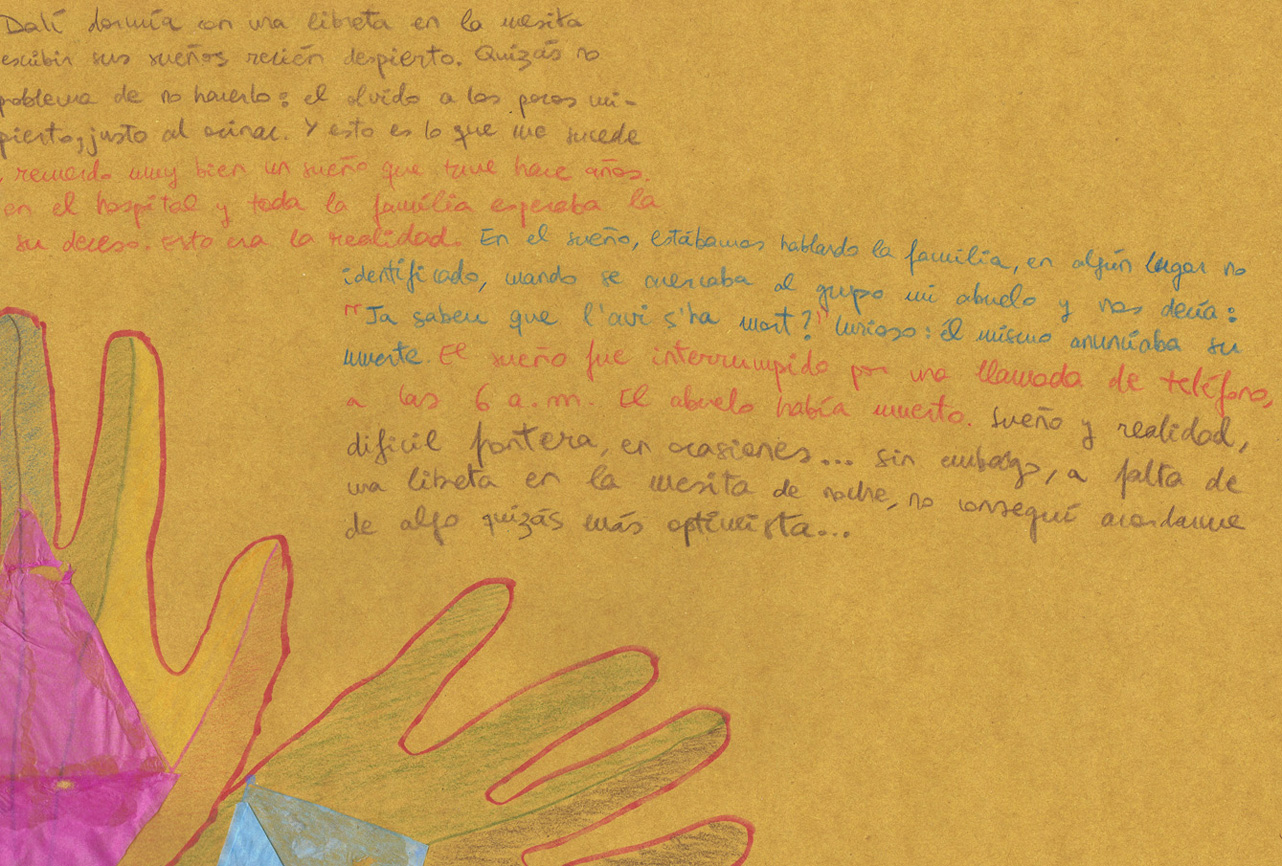 Dalí dormía con una libreta en la mesita
escribir sus sueños recién despierto. Quizás no
problema de no hacerlo: el olvido a los pocos mi-
pierto, justo al orinar. Y esto es lo que me sucede
recuerdo muy bien un sueño que tuve hace años.
en el hospital y toda la família esperaba la
su deceso. Esto era la realidad. En el sueño, estábamos hablando la familia, en algún lugar no
identificado, cuando se acercaba al grupo mi abuelo y nos decía:
"Ja sabeu que l'avi s'ha mort?" Curioso: él mismo anunciaba su
muerte. El sueño fue interrumpido por una llamada de teléfono,
a las 6 a.m. El abuelo había muerto. Sueño y realidad,
difícil frontera, en ocasiones... Sin embargo, a falta de
una libreta en la mesita de noche, no conseguí acordarme
de algo quizás más optimista...